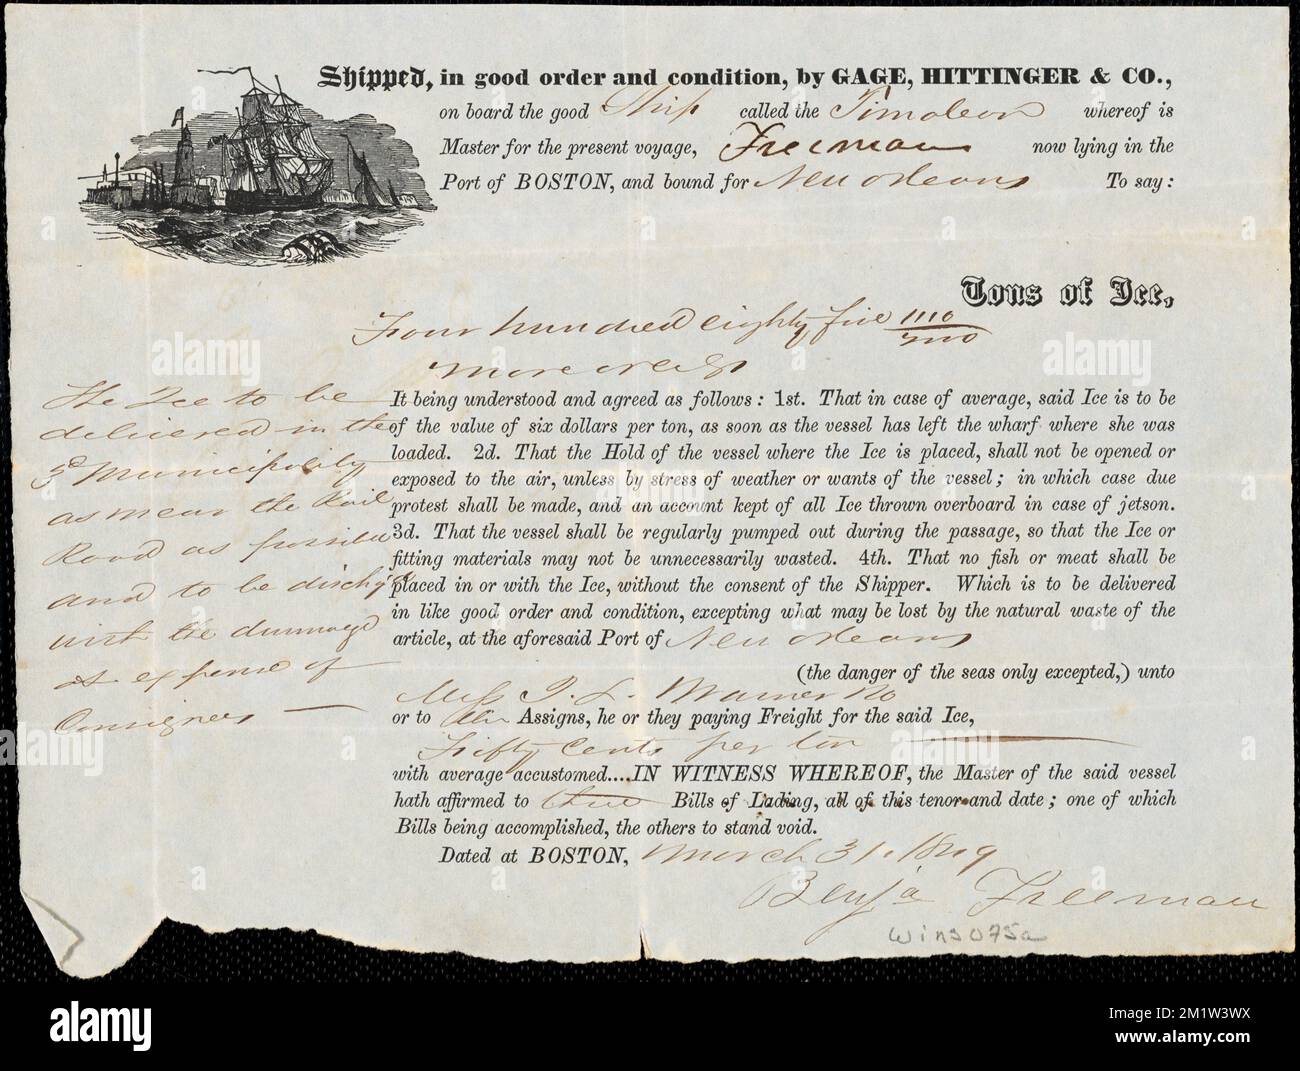 Shipped, in good order and condition, by GAGE, HITTINGER & CO.,
on board the good Ship called the Timoleon whereof is
Master for the present voyage, Freeman now lying in the
Port of BOSTON, and bound for New Orleans To say:
Tons of Ice,
Four hundred eighty five 1110/
more or less
The Ice to be
delivered in the
3d Municipality
as near the Rail
Road as possible
and to be disch'g'd
with the dunnage
at expense of
Consignees —
It being understood and agreed as follows: 1st. That in case of average, said Ice is to be
of the value of six dollars per ton, as soon as the vessel has left the wharf where she was
loaded. 2d. That the Hold of the vessel where the Ice is placed, shall not be opened or
exposed to the air, unless by stress of weather or wants of the vessel; in which case due
protest shall be made, and an account kept of all Ice thrown overboard in case of jetson.
3d. That the vessel shall be regularly pumped out during the passage, so that the Ice or
fitting materials may not be unnecessarily wasted. 4th. That no fish or meat shall be
placed in or with the Ice, without the consent of the Shipper. Which is to be delivered
in like good order and condition, excepting what may be lost by the natural waste of the
article, at the aforesaid Port of New Orleans
(the danger of the seas only excepted,) unto
Warner
or to Assigns, he or they paying Freight for the said Ice,
Fifty Cents per ton
with average accustomed....IN WITNESS WHEREOF, the Master of the said vessel
hath affirmed to three Bills of Lading, all of this tenor and date; one of which
Bills being accomplished, the others to stand void.
Dated at BOSTON, March 31. 1849
Benja Freeman
wins075a
alamy
alamy
alamy
alamy
Image ID: 2M1W3WX
www.alamy.com